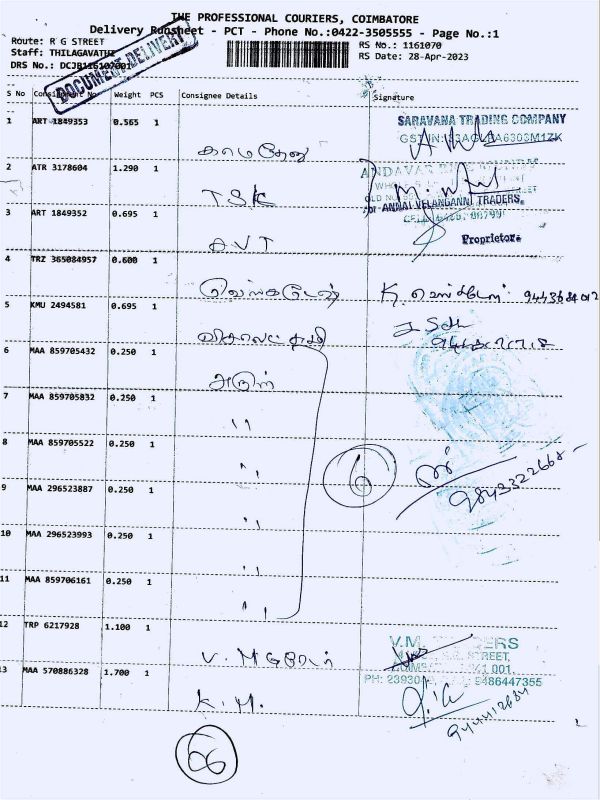 THE PROFESSIONAL COURIERS, COIMBATORE
Delivery Runsheet - PCT - Phone No.:0422-3505555 - Page No.:1
Route: R G STREET
RS No.: 1161070
Staff: THILAGAVATHI
RS Date: 28-Apr-2023
DRS No.: DCJB116107001
DOCUMENT DELIVERY
S No Consignment No Weight PCS Consignee Details Signature
1 ART 1849353 0.565 1 காமதேனு
SARAVANA TRADING COMPANY
2 ATR 3178604 1.290 1 TSK
ANNAI VELANGANNI TRADERS
3 ART 1849352 0.695 1 AVT
Proprietor
4 TRZ 365084957 0.600 1 வெங்கடேஷ்
5 KMU 2494581 0.695 1
6 MAA 859705432 0.250 1 அருண்
7 MAA 859705832 0.250 1 "
8 MAA 859705522 0.250 1 "
6
9843322668
9 MAA 296523887 0.250 1 "
10 MAA 296523993 0.250 1 "
11 MAA 859706161 0.250 1 "
12 TRP 6217928 1.100 1 V. M டிரேடர்
STREET,
001.
PH: 9486447355
13 MAA 570886328 1.700 1 K. M.
66